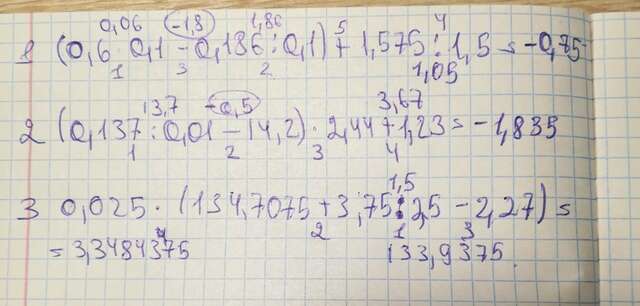 0,06 -1,8 1,86 5 4
1 (0,6 · 0,1 - 0,186 : 0,1) + 1,575 : 1,5 = -0,75
1 3 2 1,05
13,7 -0,5 3,67
2 (0,137 : 0,01 - 14,2) · 2,44 + 1,23 = -1,835
1 2 3 4
1,5
3 0,025 · (134,7075 + 3,75 : 2,5 - 2,27) =
2 1 3
= 3,3484375 4 133,9375